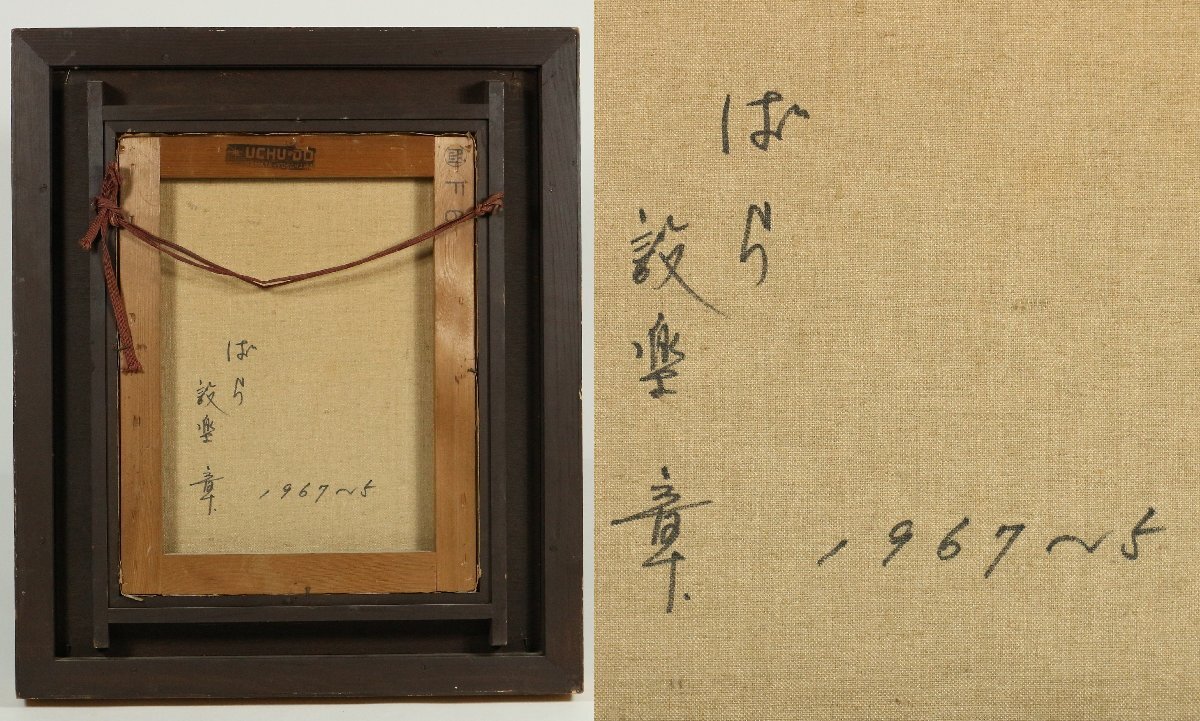 UCHU-DO
ばら
設楽
章.
1967~5
ばら
設楽
章.
1967~5